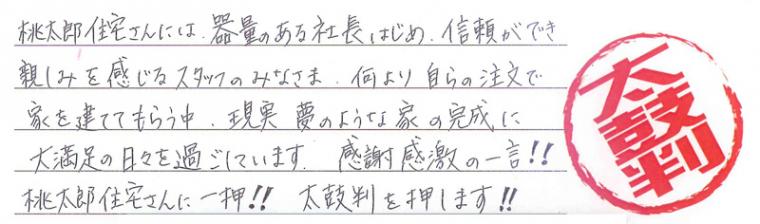 桃太郎住宅さんには、器量のある社長はじめ、信頼ができ
親しみを感じるスタッフのみなさま、何より自らの注文で
家を建ててもらう中、現実 夢のような家の完成に
大満足の日々を過ごしています。 感謝感激の一言!!
桃太郎住宅さんに一押!! 太鼓判を押します!!
太鼓判